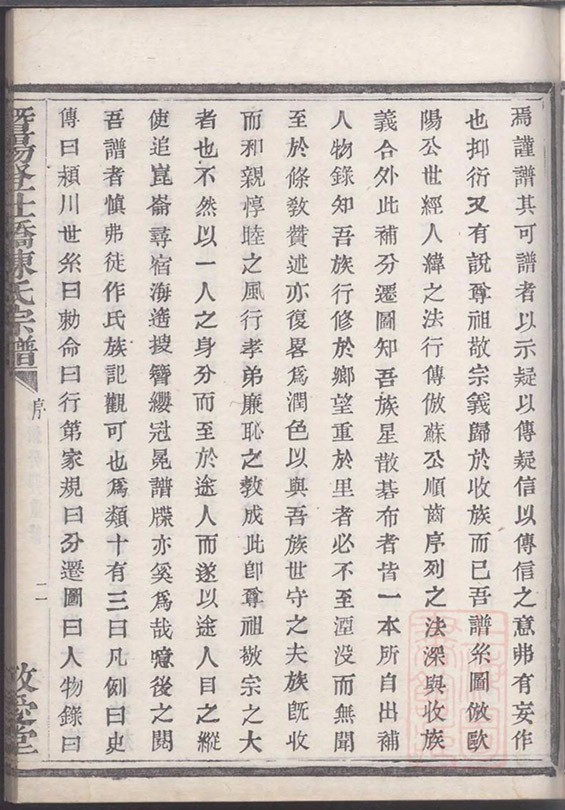 焉謹譜其可譜者以示疑以傳疑信以傳信之意弗有妄作
也抑衍又有說尊祖敬宗義歸於收族而已吾譜系圖倣歐
陽公世經人緯之法行傳倣蘇公順齒序列之法深與收族
義合外此補分遷圖知吾族星散碁布者皆一本所自出補
人物錄知吾族行修於鄉望重於里者必不至湮没而無聞
至於條敎贊述亦復畧爲潤色以與吾族世守之夫族旣收
而和親惇睦之風行孝弟廉恥之敎成此卽尊祖敬宗之大
者也不然以一人之身分而至於途人而遂以途人目之縱
使追崑崙尋宿海遙搜簪纓冠冕譜牒亦奚爲哉噫後之閱
吾譜者慎弗徒作氏族記觀可也爲類十有三曰凡例曰史
傳曰潁川世系曰勅命曰行第家規曰分遷圖曰人物錄曰
暨陽登仕橋陳氏宗譜
序
二
敬愛堂